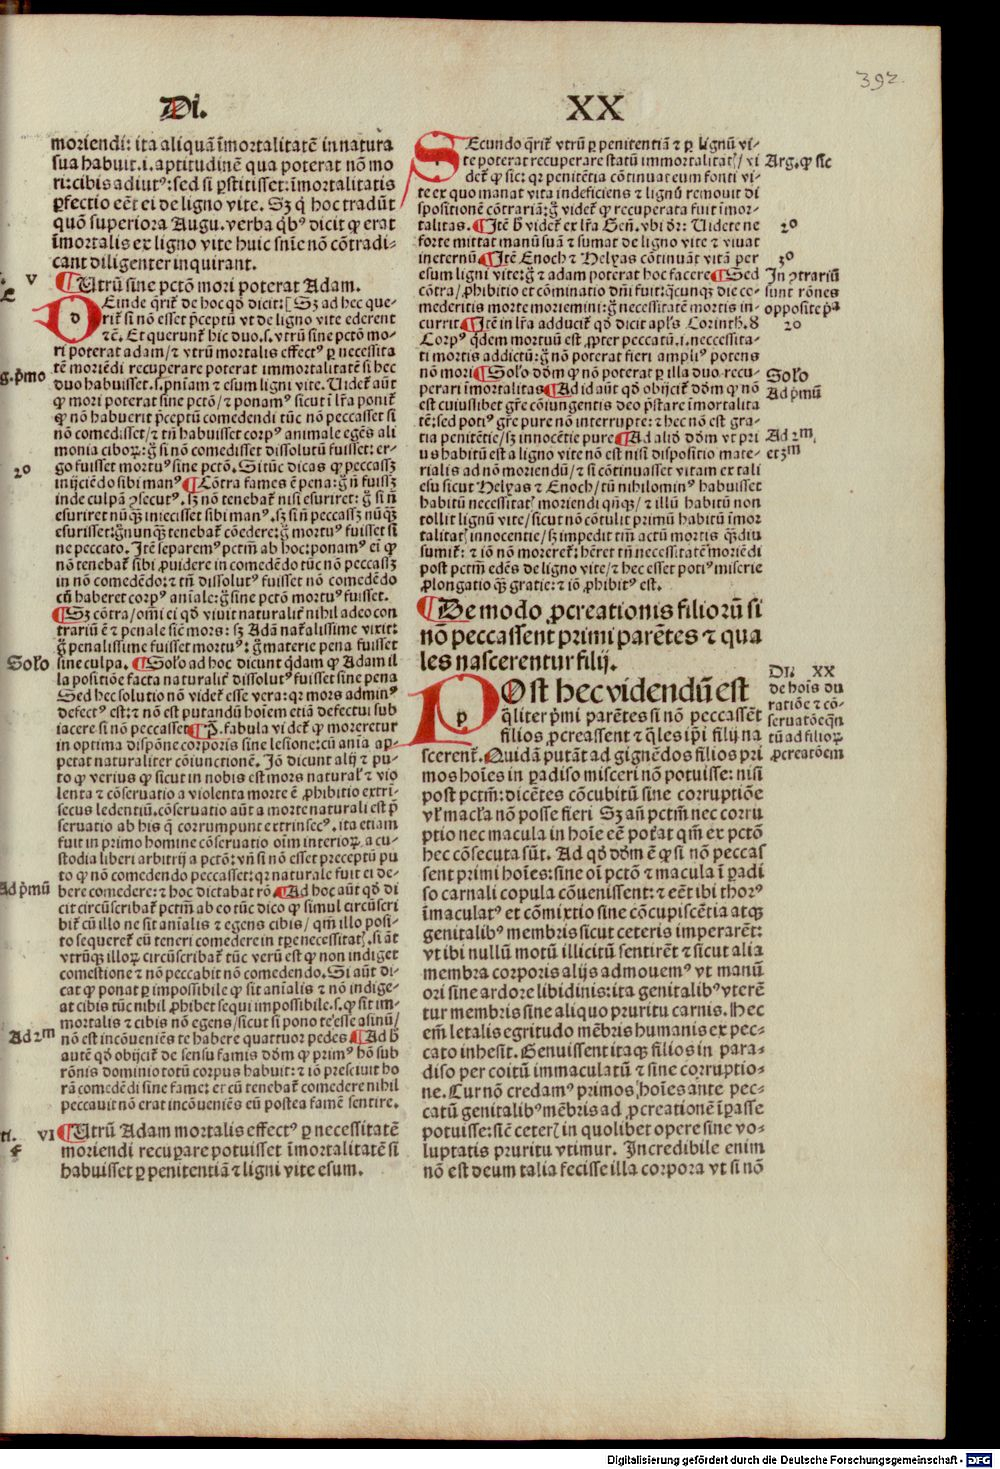 392.
Di.
XX
moriendi: ita aliquã ĩmortalitatẽ in natura
sua habuit.i.aptitudinẽ qua poterat nõ mo
ri:cibis adiutꝰ:sed si ꝑstitisset:ĩmortalitatis
ꝑfectio eẽt ei de ligno vite. Sꝫ q̇ hoc tradũt
quõ superiora Augu. verba qḃꝰ dicit ꝙ erat
ĩmortalis ex ligno vite huic sñie nõ cõtradi-
cant diligenter inquirant.
V
¶Utrũ sine pctõ mori poterat Adam.
DEinde q̃riť de hoc qḋ dicit:[Sꝫ ad hec que-
riť si nõ esset p̃ceptũ vt de ligno vite ederent
ꝛẽ. Et querunť hic duo.s.vtrũ sine pctõ mo-
ri poterat adam/ ⁊ vtrũ mortalis effectꝰ ꝑ necessita
tẽ moriẽdi recuperare poterat immortalitatẽ si hec
duo habuisset.s.pñiam ⁊ esum ligni vite. Uideť aũt
ꝙ mori poterat sine pctõ/ ⁊ ponamꝰ sicut ĩ lr̃a poniť
ꝙ nõ habuerit p̃ceptũ comedendi tũc nõ peccasset si
nõ comedisset/ ⁊ tñ habuisset corpꝰ animale egẽs ali
monia ciboꝝ: g̃ si nõ comedisset dissolutũ fuisset: er-
go fuisset mortuꝰ sine pctõ. Si tũc dicas ꝙ peccassꝫ
2º
inijciẽdo sibi manꝰ ¶Cõtra fames ẽ pena: g̃ ñ fuissꝫ
inde culpã ꝯsecutꝰ. sꝫ nõ tenebať nisi esuriret: g̃ si ñ
esuriret nũq̃ iniecisset sibi manꝰ. sꝫ si ñ peccassꝫ nũq̃
esurisset: g̃ nunq̃ tenebať cõedere: g̃ mortuꝰ fuisset si
ne peccato. Itẽ separemꝰ pctm̃ ab hoc: ponamꝰ eĩ ꝙ
nõ tenebať sibi ꝓuidere in comedẽdo tũc nõ peccassꝫ
in nõ comedẽdo: ⁊ tñ dissolutꝰ fuisset nõ comedẽdo
cũ haberet corpꝰ aniale: g̃ sine pctõ mortuꝰ fuisset.
¶Sꝫ cõtra/ om̃i ei qḋ viuit naturaliť nihil adeo con
trariũ ẽ ⁊ penale sic̃ mors: sꝫ Adã nať̃alissime vixit:
g̃ penalissime fuisset mortuꝰ: g̃ materie pena fuisset
Solo
sine culpa. ¶Solo ad hoc dicunt q̃dam ꝙ Adam il
la positiõe facta naturaliť dissolutꝰ fuisset sine pena
Sed hec solutio nõ videť esse vera: qr mors adminꝰ
defectꝰ est: ⁊ nõ est putandũ hoĩem etiã defectui sub
iacere si nõ peccasset
in optima dispõne corporis sine lesione: cũ anĩa ap-
petat naturaliter cõiunctionẽ. Iõ dicunt alij ⁊ pu-
to ꝙ verius ꝙ sicut in nobis est mors natural' ⁊ vio
lenta ⁊ cõseruatio a violenta morte ẽ ꝓhibitio extri-
secus ledentiũ. cõseruatio aũt a morte naturali est p̃
seruatio ab his q̃ corrumpunt extrĩsecꝰ. ita etiam
fuit in primo homine cõseruatio oĩm interioꝝ a cu-
stodia liberi arbitrij a pctõ: vñ si nõ esset preceptũ pu
to ꝙ nõ comedendo peccasset: qr naturale fuit ei de-
Ad p̃mũ
bere comedere: ⁊ hoc dictabat rõ ¶Ad hoc aũt qḋ di
cit circũscribať pctm̃ ab eo tũc dico ꝙ simul circũscri
biť cũ illo ne sit anĩalis ⁊ egens cibis/ qm̃ illo posi-
to sequereť eũ teneri comedere in tꝑe necessitatꝭ. si ãt
vtrũqꝫ illoꝝ circũscribať tũc verũ est ꝙ non indiget
comestione ⁊ nõ peccabit nõ comedendo. Si aũt di-
cat ꝙ ponat ꝑ impossibile ꝙ sit anĩalis ⁊ nõ indige-
at cibis tũc nihil ꝓhibet sequi impossibile.s.ꝙ sit im-
mortalis ⁊ cibis nõ egens/ sicut si pono te esse asinũ/
Ad 2m
nõ est incõueniẽs te habere quattuor pedes ¶Ad ḣ
autẽ qḋ obijciť de sensu famis dḋm ꝙ primꝰ hõ sub
rõnis dominio totũ corpus habuit: ⁊ iõ presciuit ho
rã comedẽdi sine fame: et cũ tenebať comedere nihil
peccauit nõ erat incõueniẽs eũ postea famẽ sentire.
VI
¶Utrũ Adam mortalis effectꝰ ꝑ necessitatẽ
moriendi recuꝑare potuisset ĩmortalitatẽ si
habuisset ꝑ penitentiã ⁊ ligni vite esum.
SEcundo q̃riť vtrũ ꝑ penitentiã ⁊ ꝑ lignũ vi-
te poterat recuperare statũ immortalitatꝭ/ vi
Arg. ꝙ sic
deť ꝙ sic: qr penitẽtia cõtinuat eum fonti vi-
te ex quo manat vita indeficiens ⁊ lignũ remouit di
spositionẽ cõtrariã: g̃ videť ꝙ recuperata fuit ĩmor-
2º
talitas. ¶Itẽ ḣ videť ex lr̃a Geñ. vbi dr̃: Uidete ne
forte mittat manũ suã ⁊ sumat de ligno vite ⁊ viuat
3º
in eternũ ¶Itẽ Enoch ⁊ Helyas cõtinuãt vitã per
In ꝯtrariũ
sunt rõnes
opposite p̃ª
esum ligni vite: g̃ ⁊ adam poterat hoc facere ¶Sed
cõtra/ ꝓhibitio et cõminatio dñi fuit: q̃cunqꝫ die co-
mederitis morte moriemini: g̃ necessitatẽ mortis in-
2º
currit ¶Itẽ in lr̃a adduciť qḋ dicit apl's Corinth. 8
Corpꝰ q̃dem mortuũ est ꝓpter peccatũ.i.neccessita-
ti mortis addictũ: g̃ nõ poterat fieri ampliꝰ potens
Solo
nõ mori ¶Solo dḋm ꝙ nõ poterat ꝑ illa duo recu-
Ad p̃mũ
perari ĩmortalitas ¶Ad id aũt qḋ obijciť dḋm ꝙ nõ
est cuiuslibet gr̃e cõiungentis deo p̃stare ĩmortalita
tẽ: sed potiꝰ gr̃e pure nõ interrupte: ⁊ hec nõ est gra-
Ad 2m,
et 3m
tia penitẽtie/ sꝫ innocẽtie pure ¶Ad aliḋ dḋm vt pri
us habitũ est a ligno vite nõ est nisi dispositio mate-
rialis ad nõ moriendũ/ ⁊ si cõtinuasset vitam ex tali
esu sicut Helyas ⁊ Enoch/ tũ nihilominꝰ habuisset
habitũ necessitatꝭ moriendi qñqꝫ/ ⁊ illũ habitũ non
tollit lignũ vite/ sicut nõ cõtulit primũ habitũ ĩmor
talitatꝭ innocentie/ sꝫ impedit tm̃ actũ mortis q̃diu
sumiť: ⁊ iõ nõ morereť: heret tñ necessitatẽ moriẽdi
post pctm̃ edẽs de ligno vite/ ⁊ hec esset potiꝰ miserie
ꝓlongatio q̃ gratie: ⁊ iõ ꝓhibitꝰ est.
¶De modo ꝓcreationis filiorũ si
nõ peccassent primi parẽtes ⁊ qua
les nascerentur filij.
Di. XX
de hoĩs du
ratiõe ⁊ cõ-
seruatõe q̃n
tũ ad filioꝝ
ꝓcreatõem
POst hec videndũ est
q̃liter p̃mi parẽtes si nõ peccassẽt
filios ꝓcreassent ⁊ q̃les ip̃i filij na
scerenť. Quidã putãt ad gignẽdos filios pri
mos hoĩes in ꝑadiso misceri nõ potuisse: nisi
post pctm̃: dicẽtes cõcubitũ sine corruptiõe
vl' mac̃la nõ posse fieri Sꝫ añ pctm̃ nec corru
ptio nec macula in hoĩe eẽ poťat qm̃ ex pctõ
hec cõsecuta sũt. Ad qḋ dḋm ẽ ꝙ si nõ peccas
sent primi hoĩes: sine oĩ pctõ ⁊ macula ĩ ꝑadi
so carnali copula cõuenissent: ⁊ eẽt ibi thorꝰ
ĩmaculatꝰ et cõmixtio sine cõcupiscẽtia atqꝫ
genitalibꝰ membris sicut ceteris imperarẽt:
vt ibi nullũ motũ illicitũ sentirẽt ⁊ sicut alia
membra corporis alijs admouemꝰ vt manũ
ori sine ardore libidinis: ita genitalibꝰ vterẽ
tur membris sine aliquo pruritu carnis. Hec
em̃ letalis egritudo mẽbris humanis ex pec-
cato inhesit. Genuissent itaqꝫ filios in para-
diso per coitũ immaculatũ ⁊ sine corruptio-
ne. Cur nõ credamꝰ primos hoĩes ante pec-
catũ genitalibꝰ mẽbris ad ꝓcreationẽ ĩꝑasse
potuisse: sic̃ ceterꝭ in quolibet opere sine vo-
luptatis pruritu vtimur. Incredibile enim
nõ est deum talia fecisse illa corpora vt si nõ
Digitalisierung gefördert durch die Deutsche Forschungsgemeinschaft - DFG